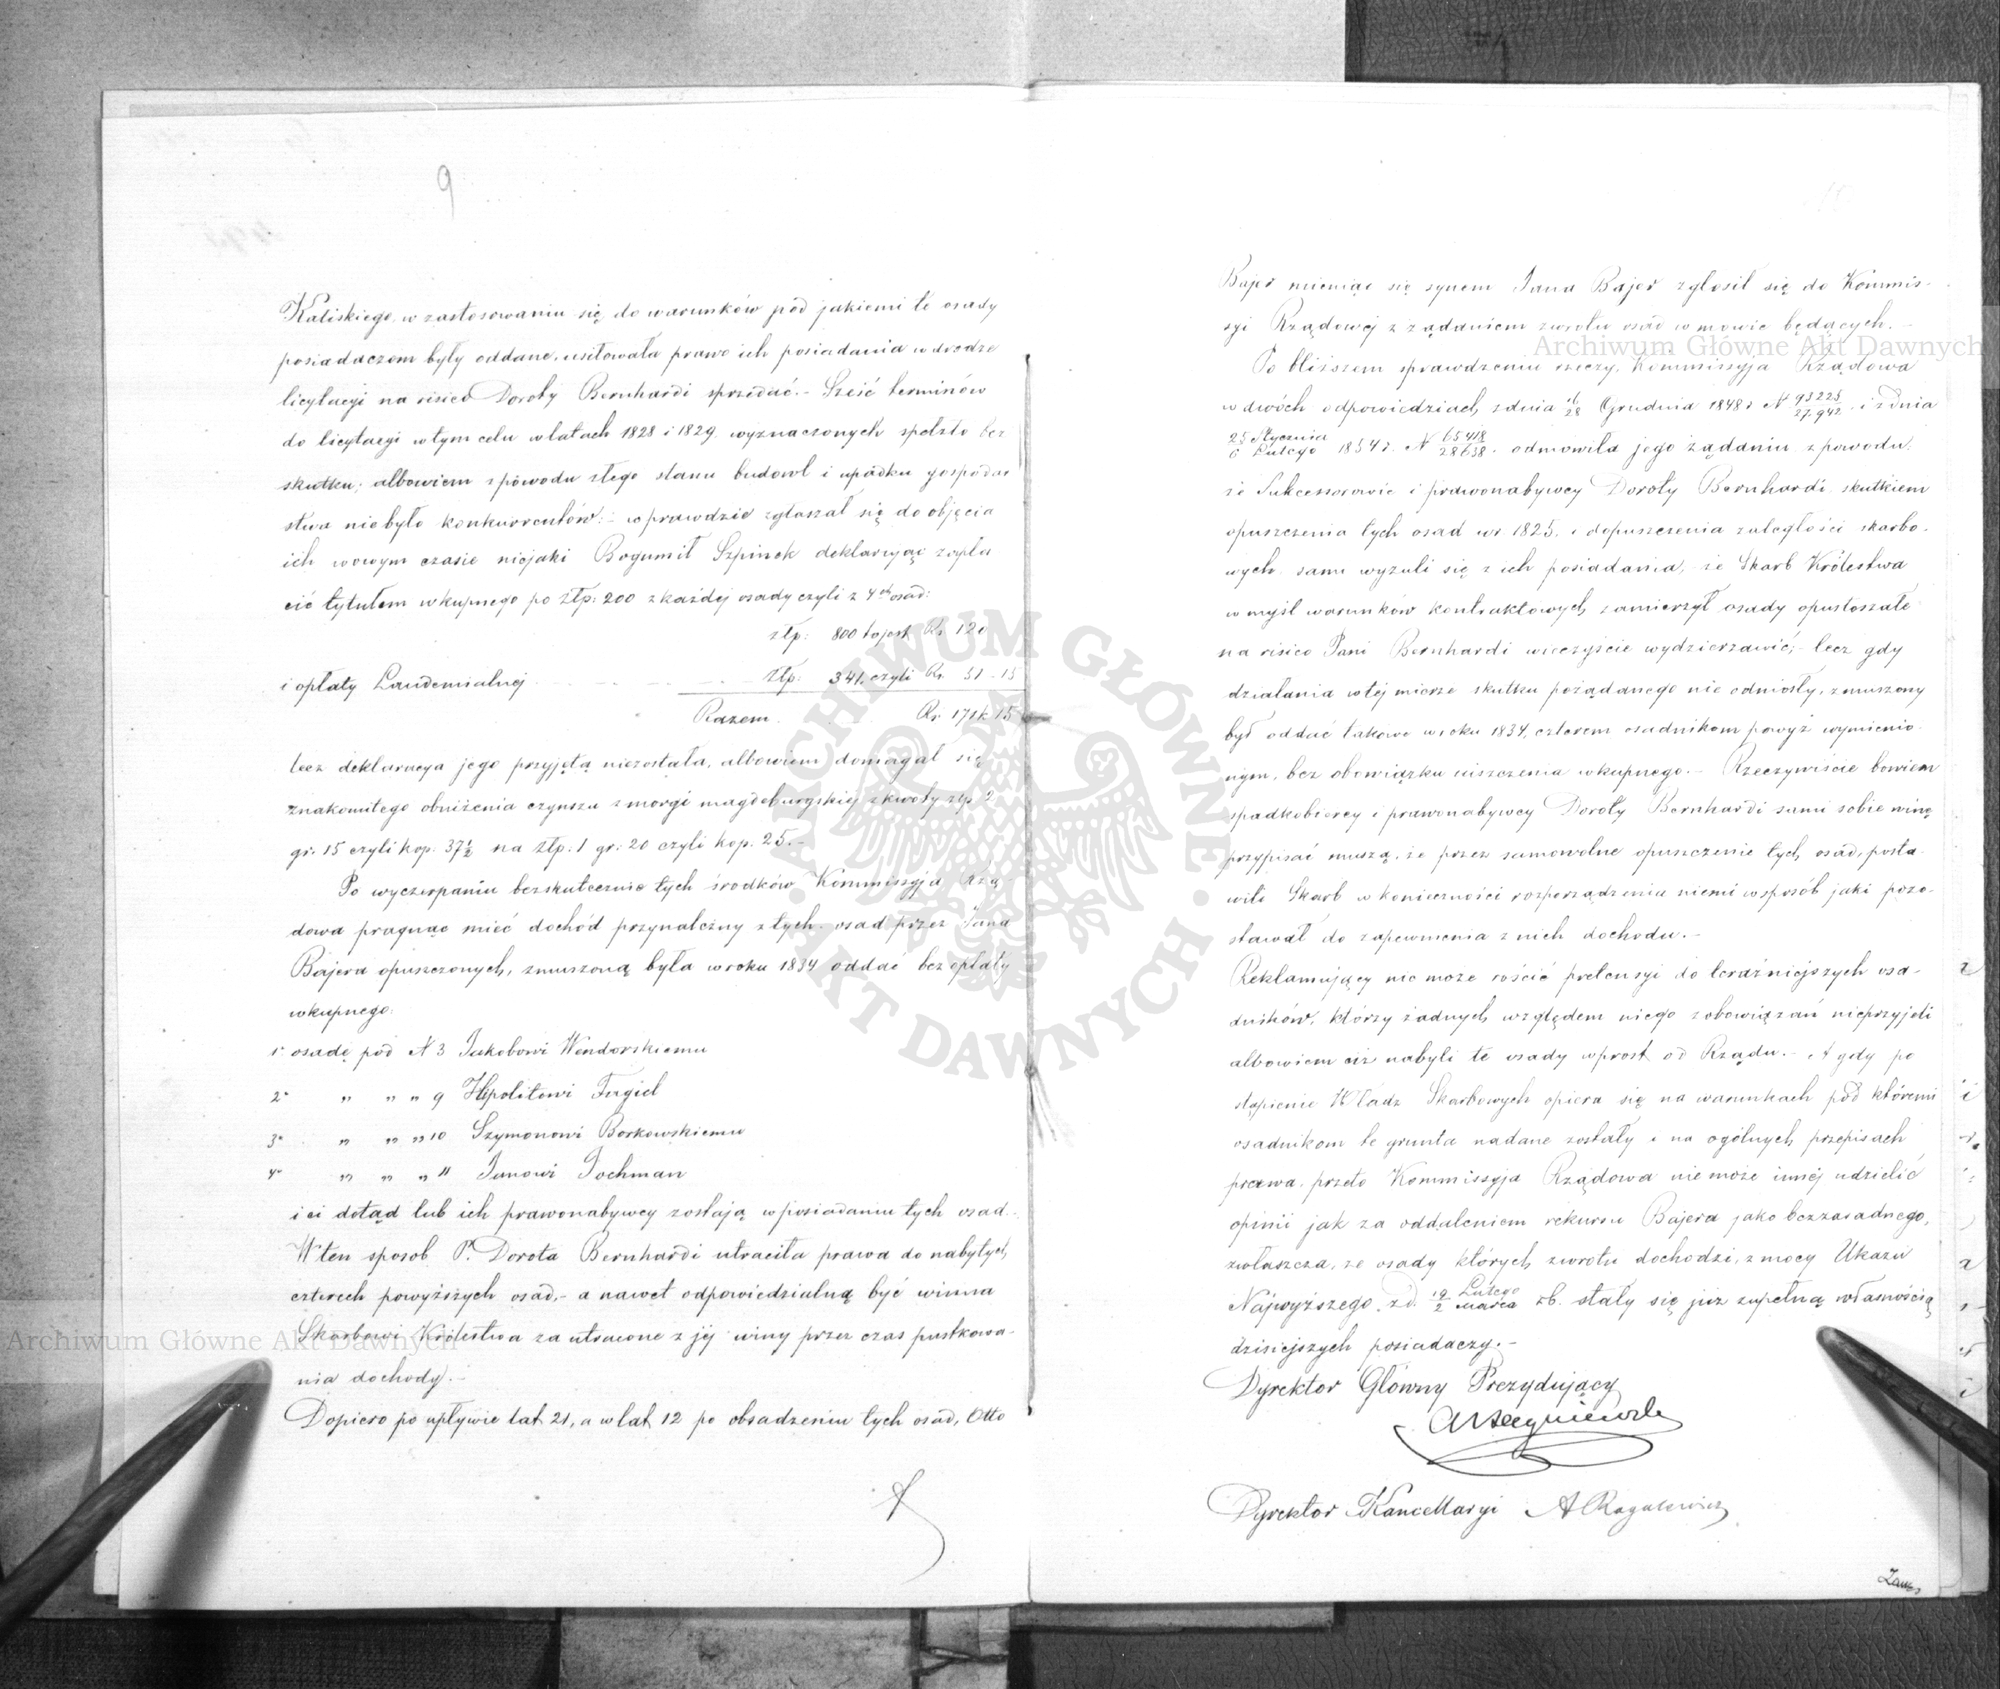 9
Kaliskiego, w zastosowaniu się do warunków pod jakiemi te osady
posiadaczom były oddane, usiłowała prawo ich posiadania w drodze
licytacyi na risico Doroty Bernhardi sprzedać. - Sześć terminów
do licytacyi w tym celu w latach 1828 i 1829 wyznaczonych spełzło bez
skutku; albowiem z powodu złego stanu budowl i upadku gospodar
stwa nie było konkurrentów: - wprawdzie zgłaszał się do objęcia
ich w owym czasie niejaki Bogumił Szpinek deklarując zapła
cić tytułem wkupnego po Złp: 200 z każdej osady czyli z 4ch osad:
złp: 800 to jest Rs 120
i opłaty Laudemialnej Złp: 341. czyli Rs. 51 - 15
Razem Rs 171 k 15
lecz deklaracya jego przyjętą niezostała, albowiem domagał się
znakomitego obniżenia czynszu z morgi magdeburgskiej z kwoty złp 2
gr. 15 czyli kop. 37½ na Złp: 1 gr: 20 czyli kop. 25. -
Po wyczerpaniu bezskutecznie tych środków Kommissyja Rzą-
dowa pragnąc mieć dochód przynależny z tych osad przez Jana
Bajera opuszczonych, zmuszoną była w roku 1834 oddać bez opłaty
wkupnego:
1° osadę pod N 3 Jakobowi Wendorskiemu
2° " " " 9 Hipolitowi Fugiel
3° " " " 10 Szymonowi Borkowskiemu
4° " " " 11 Janowi Jochman
i ci dotąd lub ich prawonabywcy zostają w posiadaniu tych osad.
W ten sposob P. Dorota Bernhardi utraciła prawa do nabytych
czterech powyższych osad, - a nawet odpowiedzialną być winna
Skarbowi Królestwa za utracone z jej winy przez czas pustkowa-
nia dochody. -
Dopiero po upływie lat 21, a w lat 12 po obsadzeniu tych osad, Otto
Bajer mieniąc się synem Jana Bajer zgłosił się do Kommis-
syi Rządowej z żądaniem zwrotu osad w mowie będących. -
Po bliższem sprawdzeniu rzeczy, Kommissyja Rządowa
w dwóch odpowiedziach z dnia 16/28 Grudnia 1848 r N 93225/27.942 i z dnia
25 Stycznia/6 Lutego 1854 r. N 65418/28638. odmowiła jego żądaniu z powodu:
że Sukcessorowie i prawonabywcy Doroty Bernhardi skutkiem
opuszczenia tych osad w r 1825, i dopuszczenia zaległości skarbo-
wych sami wyzuli się z ich posiadania, - że Skarb Królestwa
w myśl warunków kontraktowych zamierzył osady opustoszałe
na risico Pani Bernhardi wieczyście wydzierżawić; - lecz gdy
działania w tej mierze skutku pożądanego nie odniosły, zmuszony
był oddać takowe w roku 1834, czterem osadnikom powyż wymienio
nym, bez obowiązku uiszczenia wkupnego. - Rzeczywiście bowiem
spadkobiercy i prawonabywcy Doroty Bernhardi sami sobie winę
przypisać muszą, że przez samowolne opuszczenie tych osad, posta
wili Skarb w konieczności rozporządzenia niemi w sposób jaki pozo-
stawał do zapewnienia z nich dochodu. -
Reklamujący nie może rościć pretensyi do teraźniejszych osa-
dników, którzy żadnych względem niego zobowiązań nieprzyjęli
albowiem ciż nabyli te osady wprost od Rządu. - A gdy po
stąpienie Władz Skarbowych opiera się na warunkach pod któremi
osadnikom te grunta nadane zostały i na ogólnych przepisach
prawa, przeto Kommissyja Rządowa nie może innéj udzielić
opinii jak za oddaleniem rekursu Bajera jako bezzasadnego,
zwłaszcza, że osady których zwrotu dochodzi, z mocy Ukazu
Najwyższego z d. 19 Lutego/2 Marca rb. stały się już zupełną własnością
dzisiejszych posiadaczy. -
Dyrektor Główny Prezydujący
Dyrektor Kancellaryi
ARCHIWUM GŁÓWNE AKT DAWNYCH
Archiwum Główne Akt Dawnych
Archiwum Główne Akt Dawnych